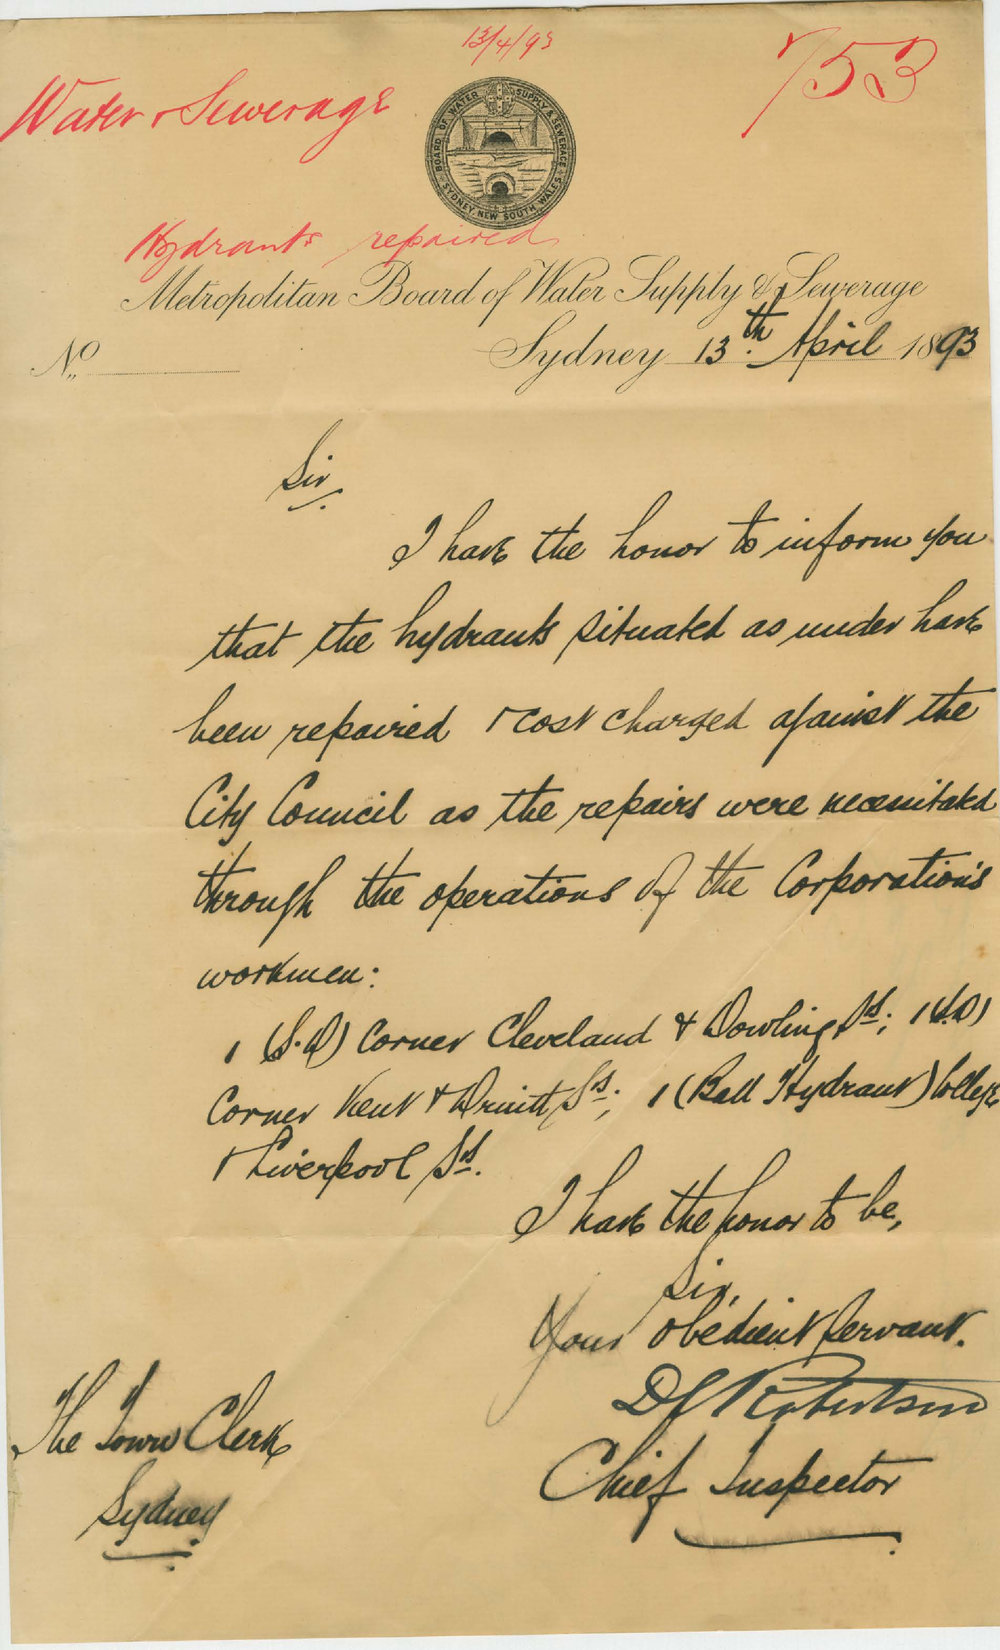 13/4/93
753
Water & Sewerage
BOARD OF WATER SUPPLY & SEWERAGE
SYDNEY, NEW SOUTH WALES
Hydrants repaired
Metropolitan Board of Water Supply & Sewerage
No
Sydney 13th April 1893
Sir
I have the honor to inform you
that the hydrants situated as under have
been repaired & cost charged against the
City Council as the repairs were necessitated
through the operations of the Corporation's
workmen:
1 (S.D) Corner Cleveland & Dowling Sts; 1 (S.D)
Corner Kent & Druitt Sts; 1 (Ball Hydrant) College
& Liverpool Sts.
I have the honor to be,
Sir,
Your obedient servant.
Robertson
Chief Inspector
The Town Clerk
Sydney